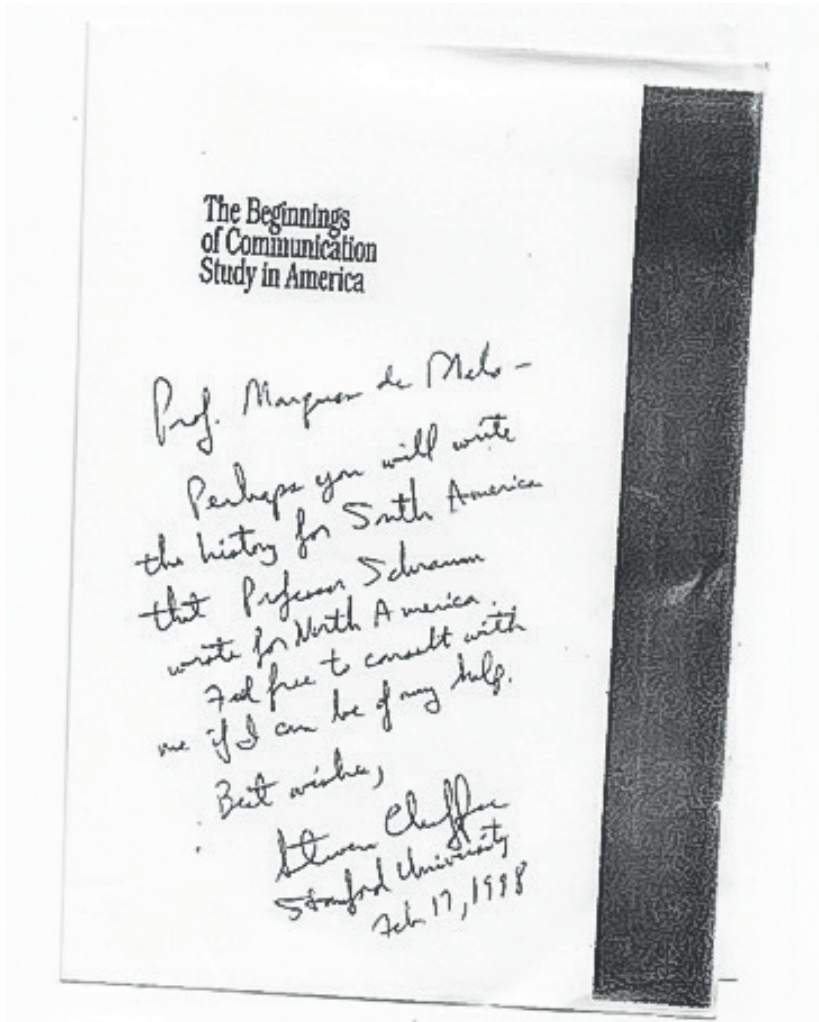 The Beginnings
of Communication
Study in America
Prof. Marques de Melo –
Perhaps you will write
the history for South America
that Professor Schramm
wrote for North America.
Feel free to consult with
me if I can be of any help.
Best wishes,
Steven Chaffee
Stanford University
Feb 17, 1998